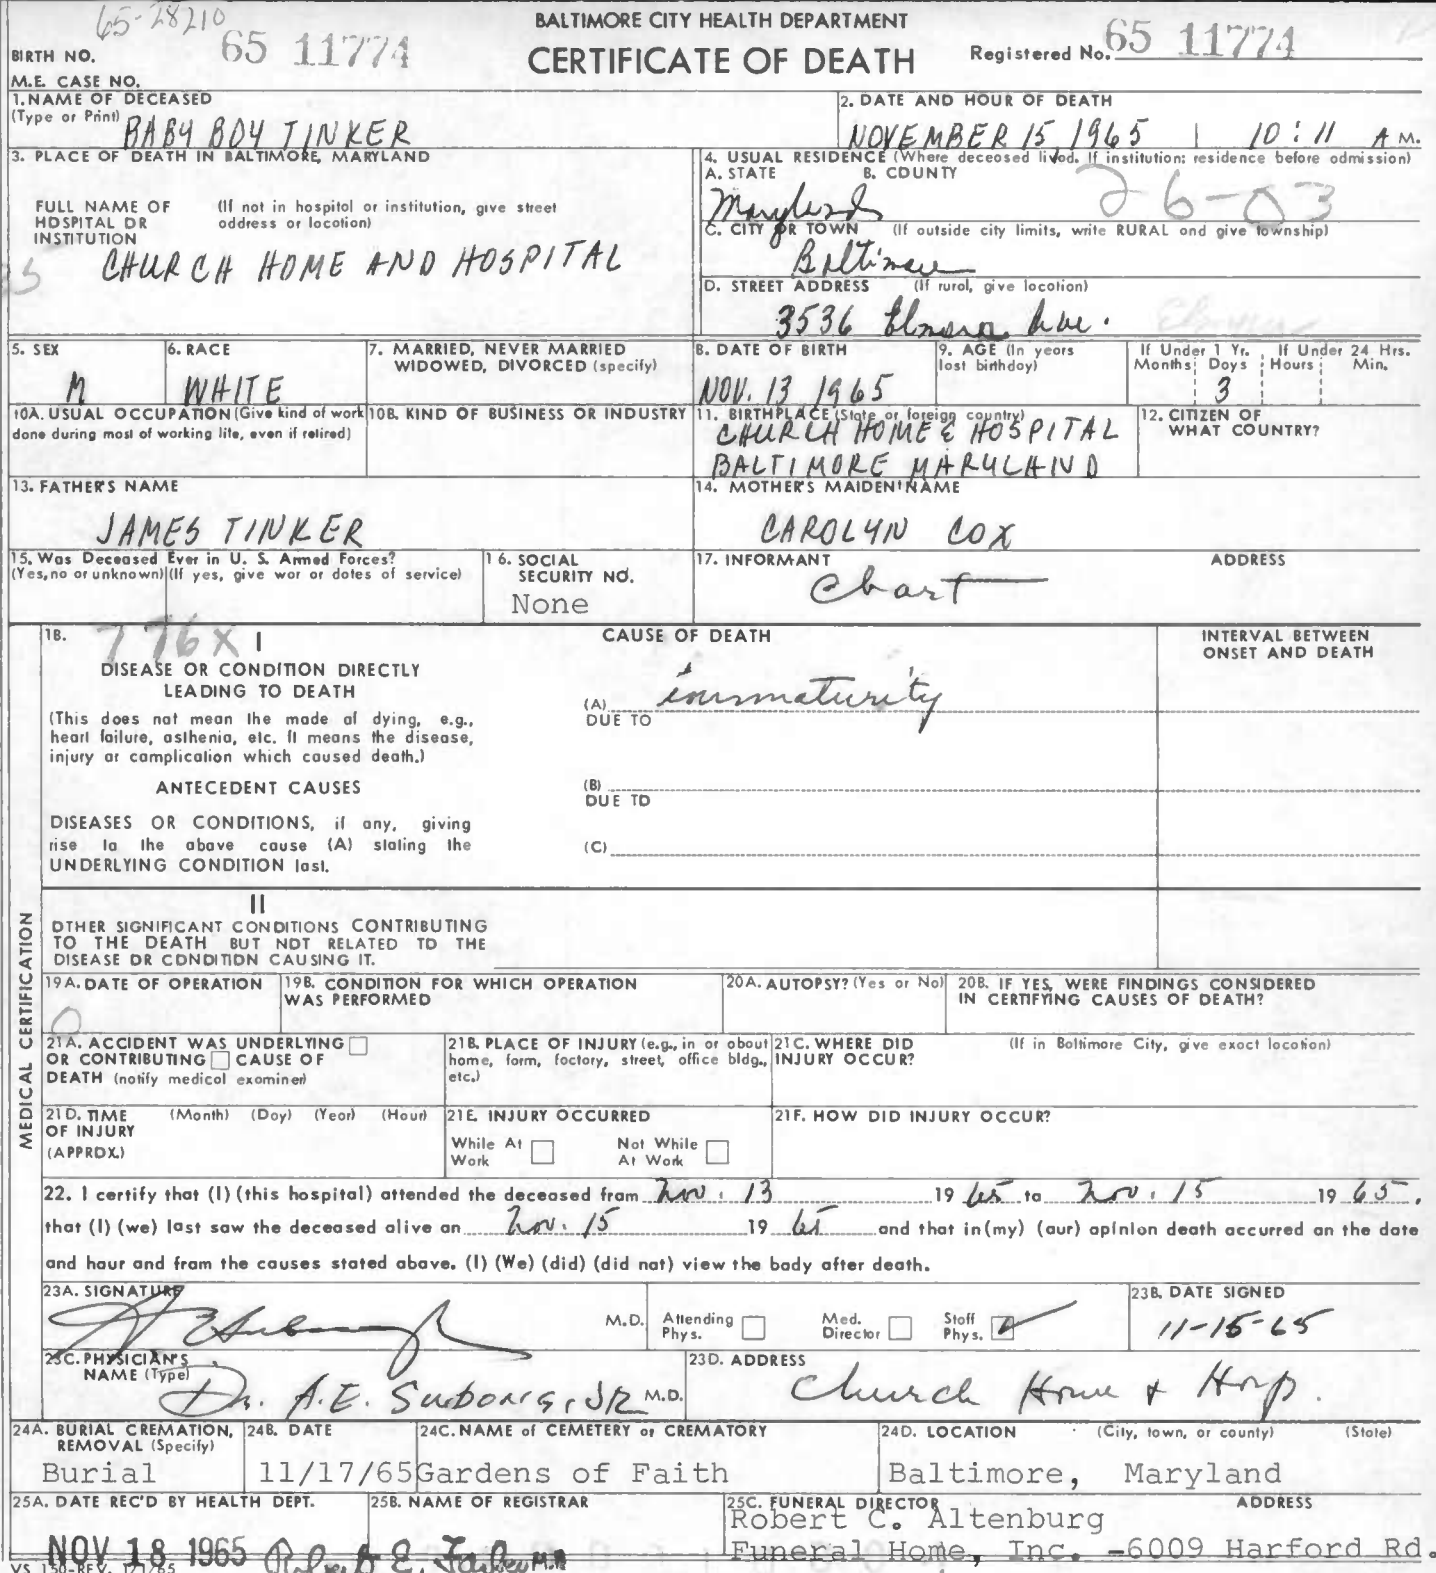 65-28210
BALTIMORE CITY HEALTH DEPARTMENT
BIRTH NO. 65 11774
CERTIFICATE OF DEATH
Registered No. 65 11774
M.E. CASE NO.
1. NAME OF DECEASED
(Type or Print) BABY BOY TINKER
2. DATE AND HOUR OF DEATH
NOVEMBER 15 1965 10:11 A M.
3. PLACE OF DEATH IN BALTIMORE, MARYLAND
FULL NAME OF HOSPITAL OR INSTITUTION
(If not in hospital or institution, give street address or location)
CHURCH HOME AND HOSPITAL
4. USUAL RESIDENCE (Where deceased lived. If institution: residence before admission)
A. STATE B. COUNTY
Maryland 26-03
C. CITY OR TOWN (If outside city limits, write RURAL and give township)
Baltimore
D. STREET ADDRESS (If rural, give location)
3536 Elmora Ave.
5. SEX
M
6. RACE
WHITE
7. MARRIED, NEVER MARRIED
WIDOWED, DIVORCED (specify)
8. DATE OF BIRTH
NOV. 13 1965
9. AGE (In years
last birthday)
If Under 1 Yr. If Under 24 Hrs.
Months Days Hours Min.
3
10A. USUAL OCCUPATION (Give kind of work
done during most of working life, even if retired)
10B. KIND OF BUSINESS OR INDUSTRY
11. BIRTHPLACE (State or foreign country)
CHURCH HOME & HOSPITAL
BALTIMORE MARYLAND
12. CITIZEN OF
WHAT COUNTRY?
13. FATHER'S NAME
JAMES TINKER
14. MOTHER'S MAIDEN NAME
CAROLYN COX
15. Was Deceased Ever in U. S. Armed Forces?
(Yes, no or unknown) (If yes, give war or dates of service)
16. SOCIAL
SECURITY NO.
None
17. INFORMANT ADDRESS
Chart
MEDICAL CERTIFICATION
18. 776X I
DISEASE OR CONDITION DIRECTLY
LEADING TO DEATH
(This does not mean the mode of dying, e.g.,
heart failure, asthenia, etc. It means the disease,
injury or complication which caused death.)
ANTECEDENT CAUSES
DISEASES OR CONDITIONS, if any, giving
rise to the above cause (A) stating the
UNDERLYING CONDITION last.
CAUSE OF DEATH
(A) immaturity
DUE TO
(B)
DUE TO
(C)
INTERVAL BETWEEN
ONSET AND DEATH
II
OTHER SIGNIFICANT CONDITIONS CONTRIBUTING
TO THE DEATH BUT NOT RELATED TO THE
DISEASE OR CONDITION CAUSING IT.
19A. DATE OF OPERATION
0
19B. CONDITION FOR WHICH OPERATION
WAS PERFORMED
20A. AUTOPSY? (Yes or No)
20B. IF YES, WERE FINDINGS CONSIDERED
IN CERTIFYING CAUSES OF DEATH?
21A. ACCIDENT WAS UNDERLYING
OR CONTRIBUTING CAUSE OF
DEATH (notify medical examiner)
21B. PLACE OF INJURY (e.g., in or about
home, farm, factory, street, office bldg.,
etc.)
21C. WHERE DID (If in Baltimore City, give exact location)
INJURY OCCUR?
21D. TIME (Month) (Day) (Year) (Hour)
OF INJURY
(APPROX.)
21E. INJURY OCCURRED
While At Work Not While At Work
21F. HOW DID INJURY OCCUR?
22. I certify that (I) (this hospital) attended the deceased from Nov. 13 19 65 to Nov. 15 19 65,
that (I) (we) last saw the deceased alive on Nov. 15 19 65 and that in (my) (our) opinion death occurred on the date
and hour and from the causes stated above. (I) (We) (did) (did not) view the body after death.
23A. SIGNATURE
M.D.
Attending Phys. Med. Director Staff Phys.
23B. DATE SIGNED
11-15-65
23C. PHYSICIAN'S
NAME (Type)
Dr. A.E. Subong, JR M.D.
23D. ADDRESS
Church Home & Hosp.
24A. BURIAL CREMATION,
REMOVAL (Specify)
Burial
24B. DATE
11/17/65
24C. NAME of CEMETERY or CREMATORY
Gardens of Faith
24D. LOCATION (City, town, or county) (State)
Baltimore, Maryland
25A. DATE REC'D BY HEALTH DEPT.
NOV 18 1965
25B. NAME OF REGISTRAR
Robert E. Farber M.D.
25C. FUNERAL DIRECTOR ADDRESS
Robert C. Altenburg
Funeral Home, Inc. -6009 Harford Rd.
VS 150-REV. 1/1/65